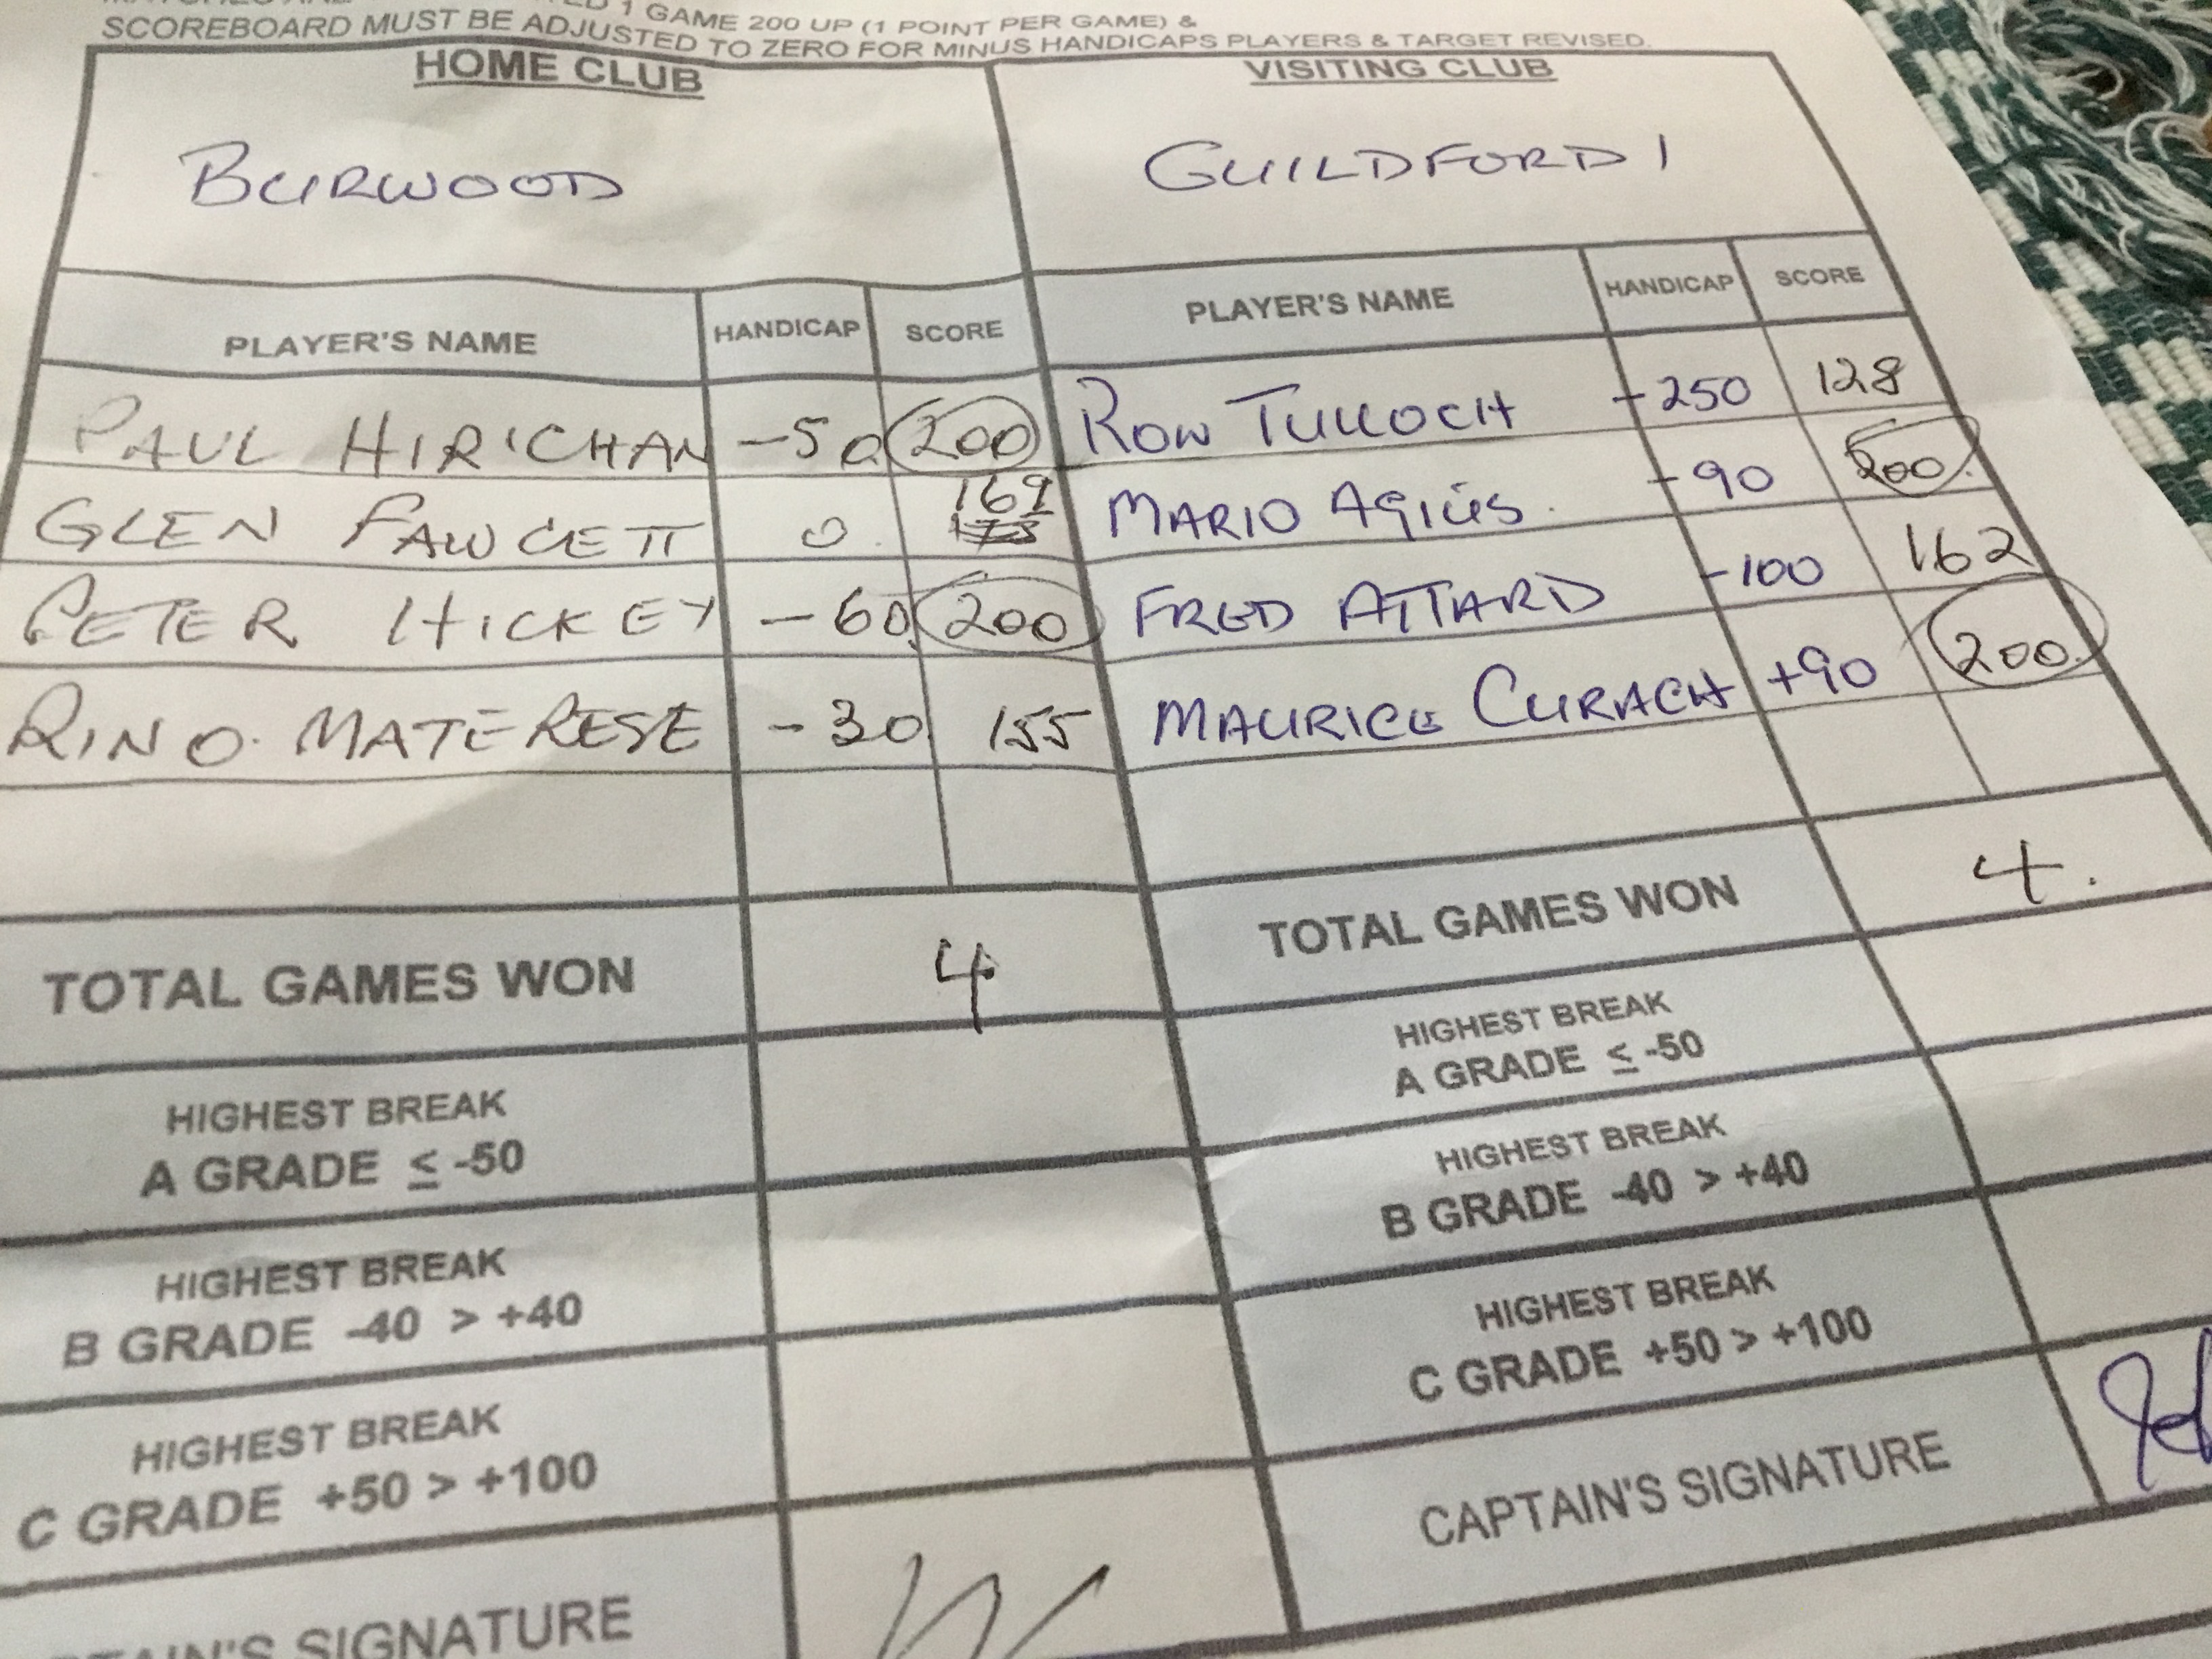 1 GAME 200 UP (1 POINT PER GAME) &
SCOREBOARD MUST BE ADJUSTED TO ZERO FOR MINUS HANDICAPS PLAYERS & TARGET REVISED.
HOME CLUB VISITING CLUB
BURWOOD GUILDFORD 1
PLAYER'S NAME HANDICAP SCORE PLAYER'S NAME HANDICAP SCORE
PAUL HIRICHAN -50 200 RON TULLOCH -250 128
GLEN FAWCETT 0 169 MARIO AGIUS -90 200
PETER HICKEY -60 200 FRED ATTARD -100 162
RINO MATERESE -30 155 MAURICE CURACH +90 200
TOTAL GAMES WON 4 TOTAL GAMES WON 4
HIGHEST BREAK HIGHEST BREAK
A GRADE ≤ -50 A GRADE ≤ -50
HIGHEST BREAK HIGHEST BREAK
B GRADE -40 > +40 B GRADE -40 > +40
HIGHEST BREAK HIGHEST BREAK
C GRADE +50 > +100 C GRADE +50 > +100
SIGNATURE CAPTAIN'S SIGNATURE